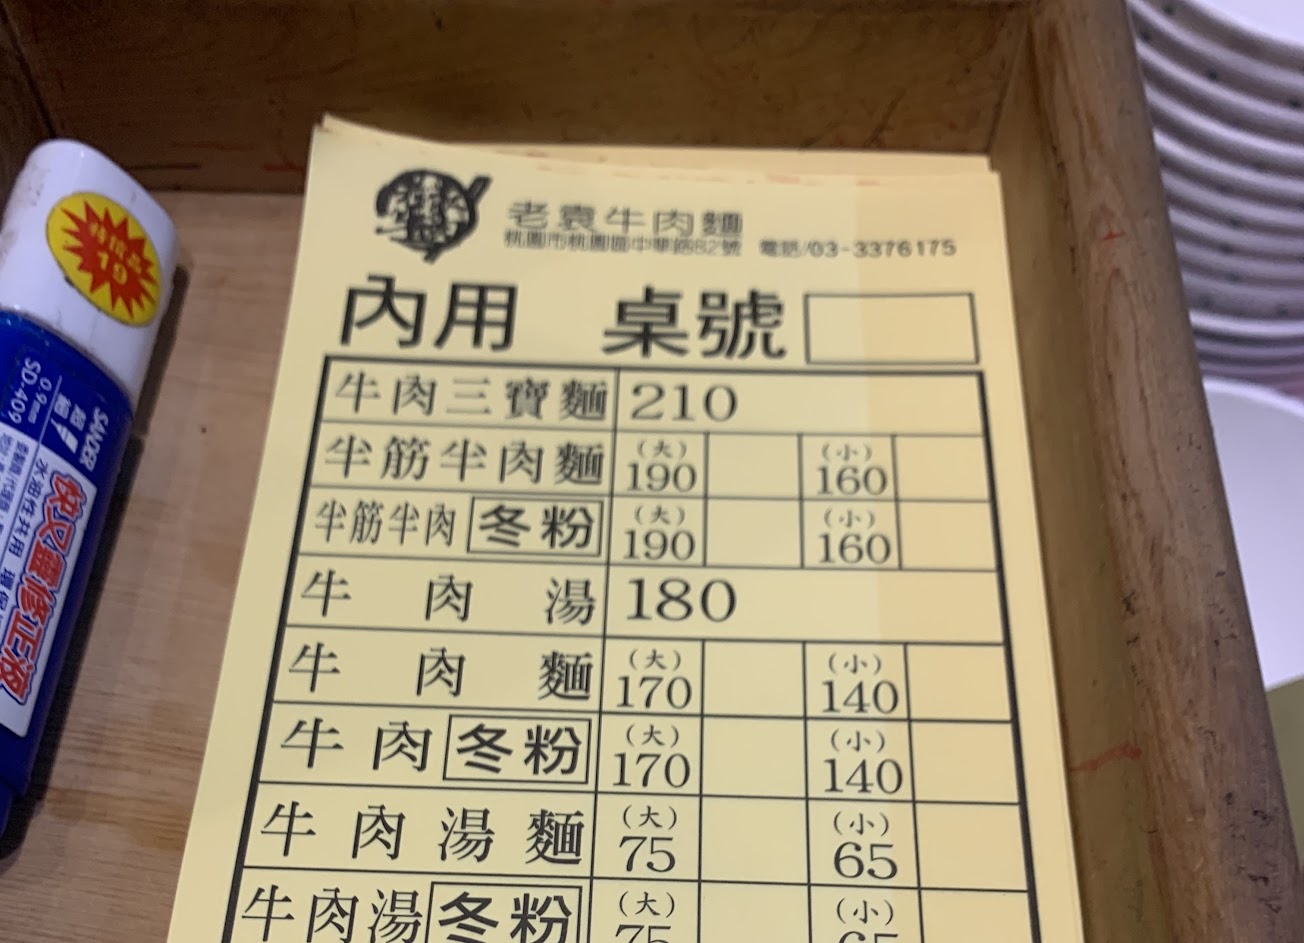 老袁牛肉麵
桃園市桃園區中華路82號 電話/03-3376175
內用 桌號
牛肉三寶麵 210
半筋半肉麵 (大) 190 (小) 160
半筋半肉 冬粉 (大) 190 (小) 160
牛肉湯 180
牛肉麵 (大) 170 (小) 140
牛肉 冬粉 (大) 170 (小) 140
牛肉湯麵 (大) 75 (小) 65
牛肉湯 冬粉 (大) 75 (小) 65
19
SD-409
0.9mm
SANDER
水油性共用 環保
快又靈修正液